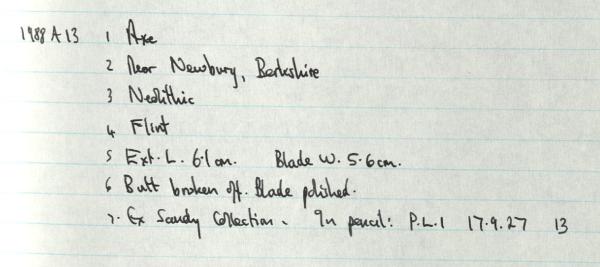 1988 A 13 1 Axe
2 Near Newbury, Berkshire
3 Neolithic
4 Flint
5 Ext. L. 6.1cm. Blade W. 5.6cm.
6 Butt broken off. Blade polished.
7. Ex Sandy Collection. In pencil: P.L.1 17.9.27 13